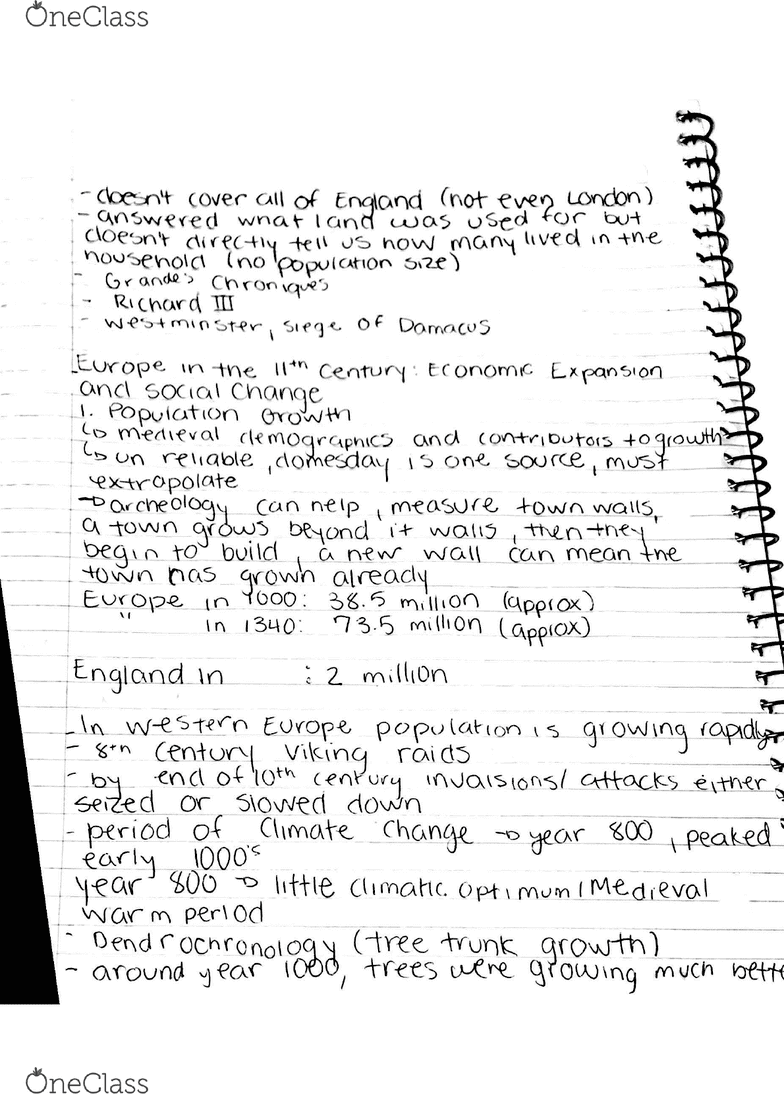 OneClass
- doesn't cover all of England (not even London)
- answered what land was used for but
doesn't directly tell us how many lived in the
household (no population size)
- Grande's Chroniques
- Richard III
- Westminster, siege of Damacus
- Europe in the 11th Century: Economic Expansion
and social change
1. Population Growth
↳ medieval demographics and contributors to growth
↳ un reliable, domesday is one source, must
extrapolate
→ archeology can help, measure town walls,
a town grows beyond it walls, then they
begin to build, a new wall can mean the
town has grown already
Europe in 1000: 38.5 million (approx)
" in 1340: 73.5 million (approx)
England in : 2 million
- In western Europe population is growing rapidly
- 8th century Viking raids
- by end of 10th century invaisions/ attacks either
seized or slowed down
- period of climate change → year 800, peaked
early 1000's
year 800 → little climatic optimum/Medieval
warm period
- Dendrochronology (tree trunk growth)
- around year 1000, trees were growing much bette
OneClass